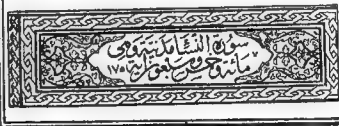 سورة النساء مدنية وهي
مائة وخمس وسبعون آية ١٧٥